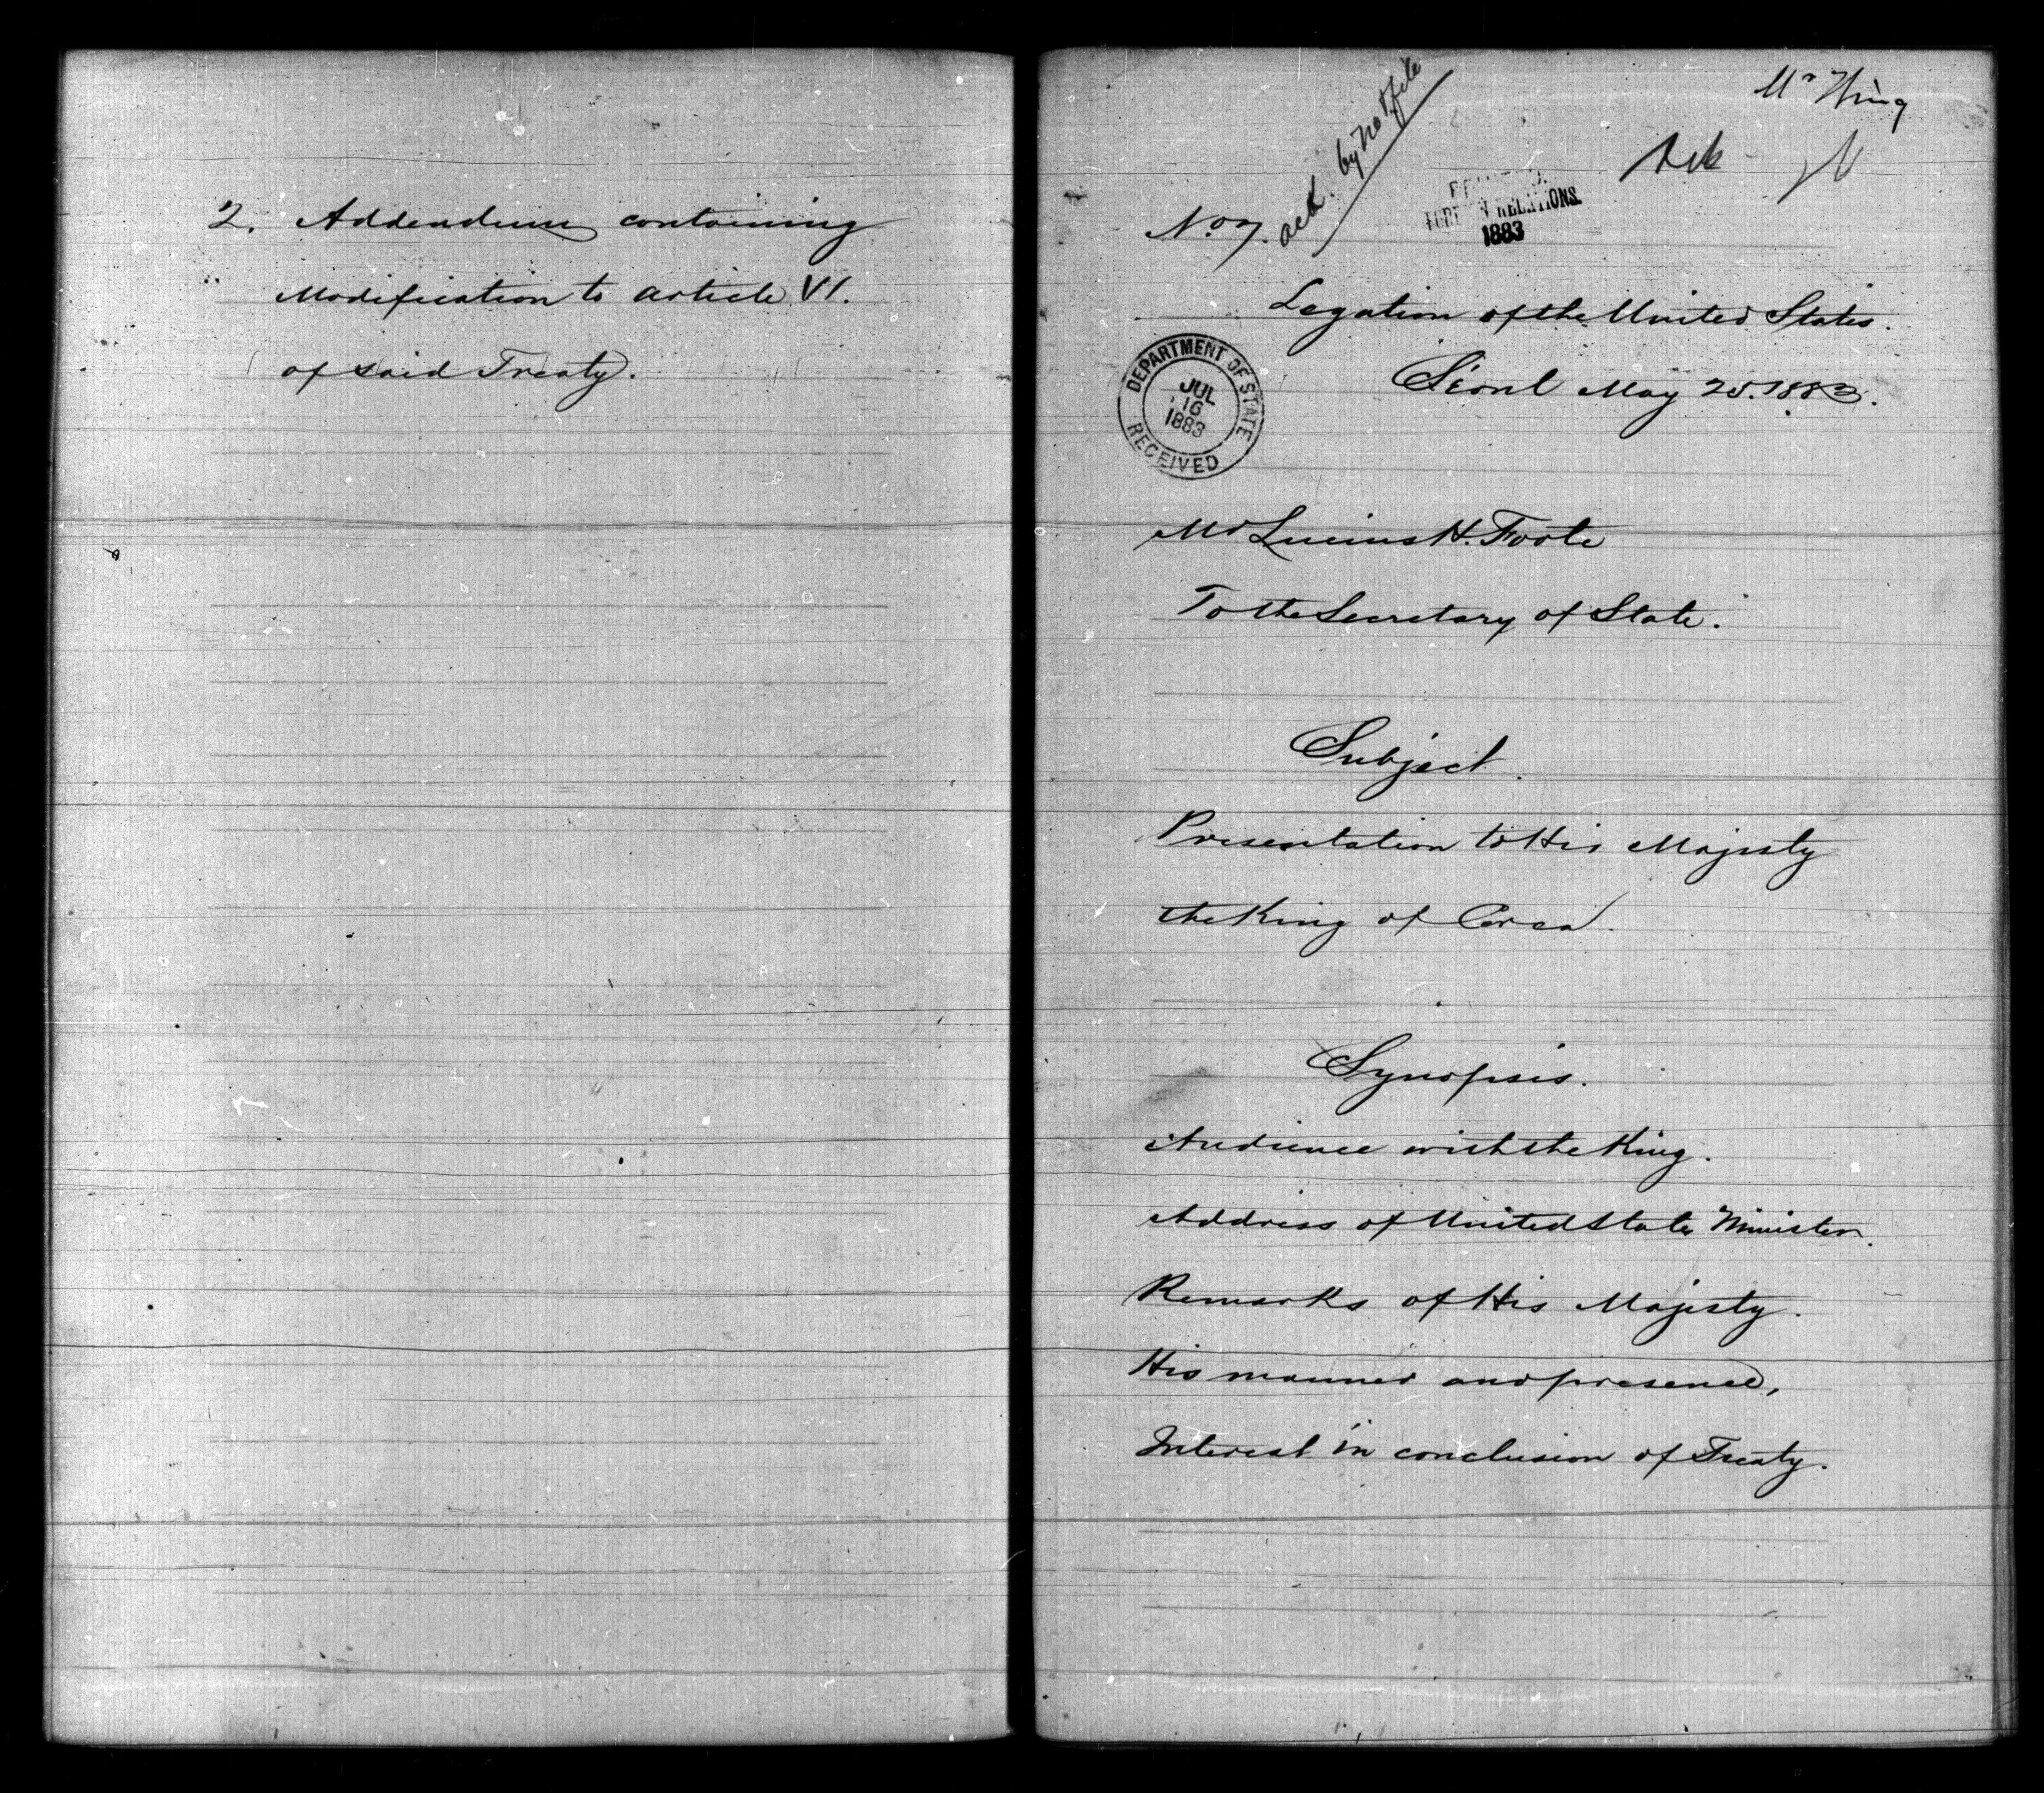 2. Addendum containing
Modification to article VI.
of said Treaty.
Mr
Ack
ack by not file
No 7.
RELATIONS.
1883
Legation of the United States.
Séoul May 25. 1883.
DEPARTMENT OF STATE
JUL
16
1883
RECEIVED
Mr Lucius H. Foote
To the Secretary of State.
Subject.
Presentation to His Majesty
the King of Corea.
Synopsis.
Audience with the King.
Address of United States Minister.
Remarks of His Majesty.
His manner and presence,
Interest in conclusion of Treaty.